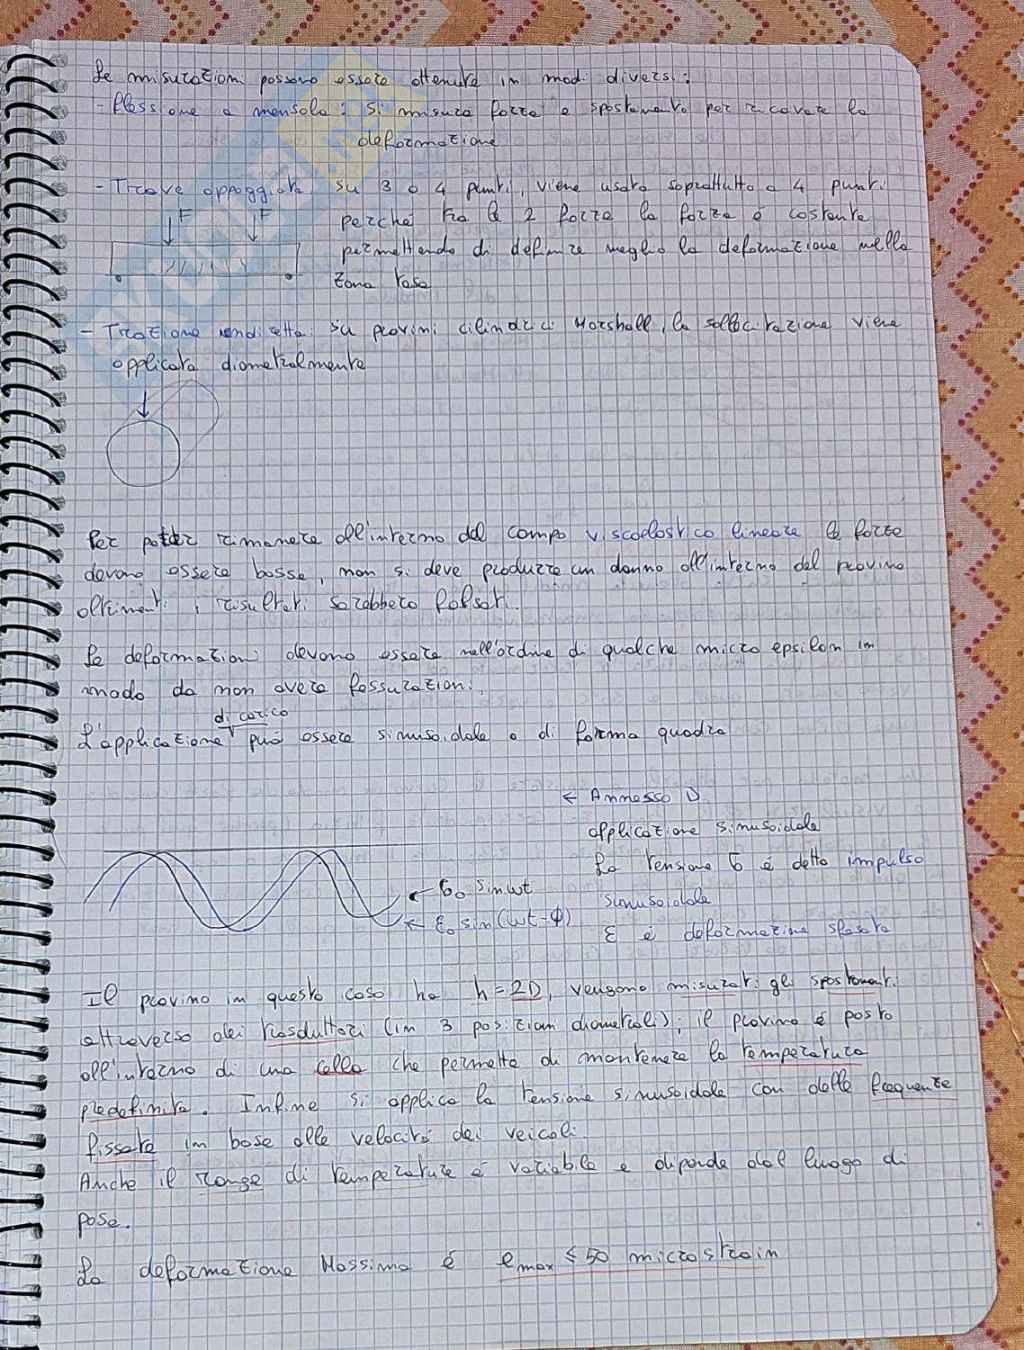 Le misurazioni possono essere ottenute in modi diversi:
- flessione a mensola: si misura forza e spostamento per ricavare la
deformazione
- Trave appoggiata su 3 o 4 punti, viene usata soprattutto a 4 punti
F F perché tra le 2 forze la forza è costante
permettendo di definire meglio la deformazione nella
zona tesa
- Trazione indiretta: su provini cilindrici Marshall, la sollecitazione viene
applicata diametralmente
Per poter rimanere all'interno del campo viscoelastico lineare le forze
devono essere basse, non si deve produrre un danno all'interno del provino
altrimenti i risultati sarebbero falsati.
Le deformazioni devono essere nell'ordine di qualche micro epsilon in
modo da non avere fessurazioni.
di carico
L'applicazione può essere sinusoidale o di forma quadra
← Annesso D
applicazione sinusoidale
La tensione σ è detta impulso
← σ₀ sin ωt sinusoidale
← ε₀ sin(ωt-φ) ε è deformazine sfasata
Il provino in questo caso ha h=2D, vengono misurati gli spostamenti
attraverso dei trasduttori (in 3 posizioni diametrali); il provino è posto
all'interno di una cella che permette di mantenere la temperatura
predefinita. Infine si applica la tensione sinusoidale con delle frequenze
fissate in base alle velocità dei veicoli.
Anche il range di temperature è variabile e dipende dal luogo di
posa.
La deformazione Massima è e max ≤ 50 microstrain